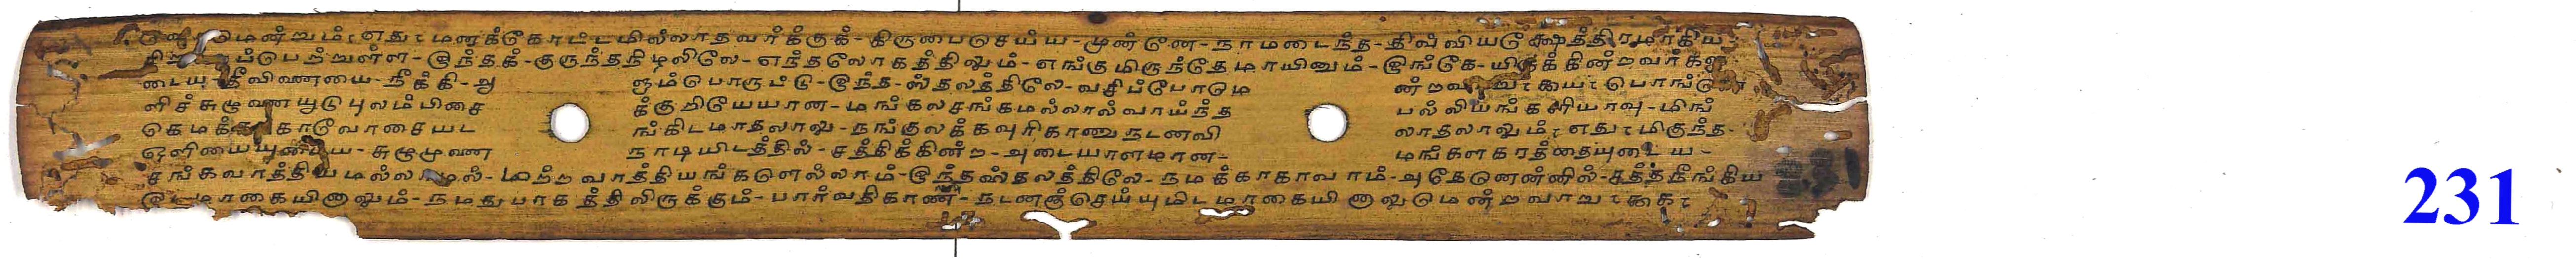 மென்றும் எது மனக்கோட்டமில்லாதவர்க்குக் - கிருபைசெய்ய - முன்னே - நாமடைந்த - திவ்வியக்ஷேத்திரமாகிய -
பெற்றுள்ள - இந்தக் - குருந்தநிழலிலே - எந்தலோகத்திலும் - எங்குமிருந்தோமாயினும் - இங்கே - யிருக்கின்றவர்க
டைய தீவினையை - நீக்கி - அ ரும்பொருட்டு - இந்த - ஸ்தலத்திலே - வசிப்போம
ளிச்சுழுனையூடு புலம்பிசை க்குறியேயான - மங்கலசங்கமல்லால் வாய்ந்த பல்லியங்களியாவு - மிங்
வாசையட ங்கிடமாதலாலு - நங்குலக்கவுரிகாணுநடனவி லாதலாலும் எது மிகுந்த -
ஒளியையுடைய - சுழுமுனை நாடியிடத்தில் - சத்திக்கின்ற - அடையாளமான - மங்களகரத்தையுடைய -
சங்கவாத்தியமல்லாமல் - மற்ற வாத்தியங்களெல்லாம் - இந்தஸ்தலத்திலே - நமக்காகாவாம் - அதேனென்னில் - சத்தநீங்கிய
இடமாகையினாலும் - நமதுபாகத்திலிருக்கும் - பார்வதிகாண - நடனஞ்செய்யுமிடமாகையினாலுமென்றவாறு
231